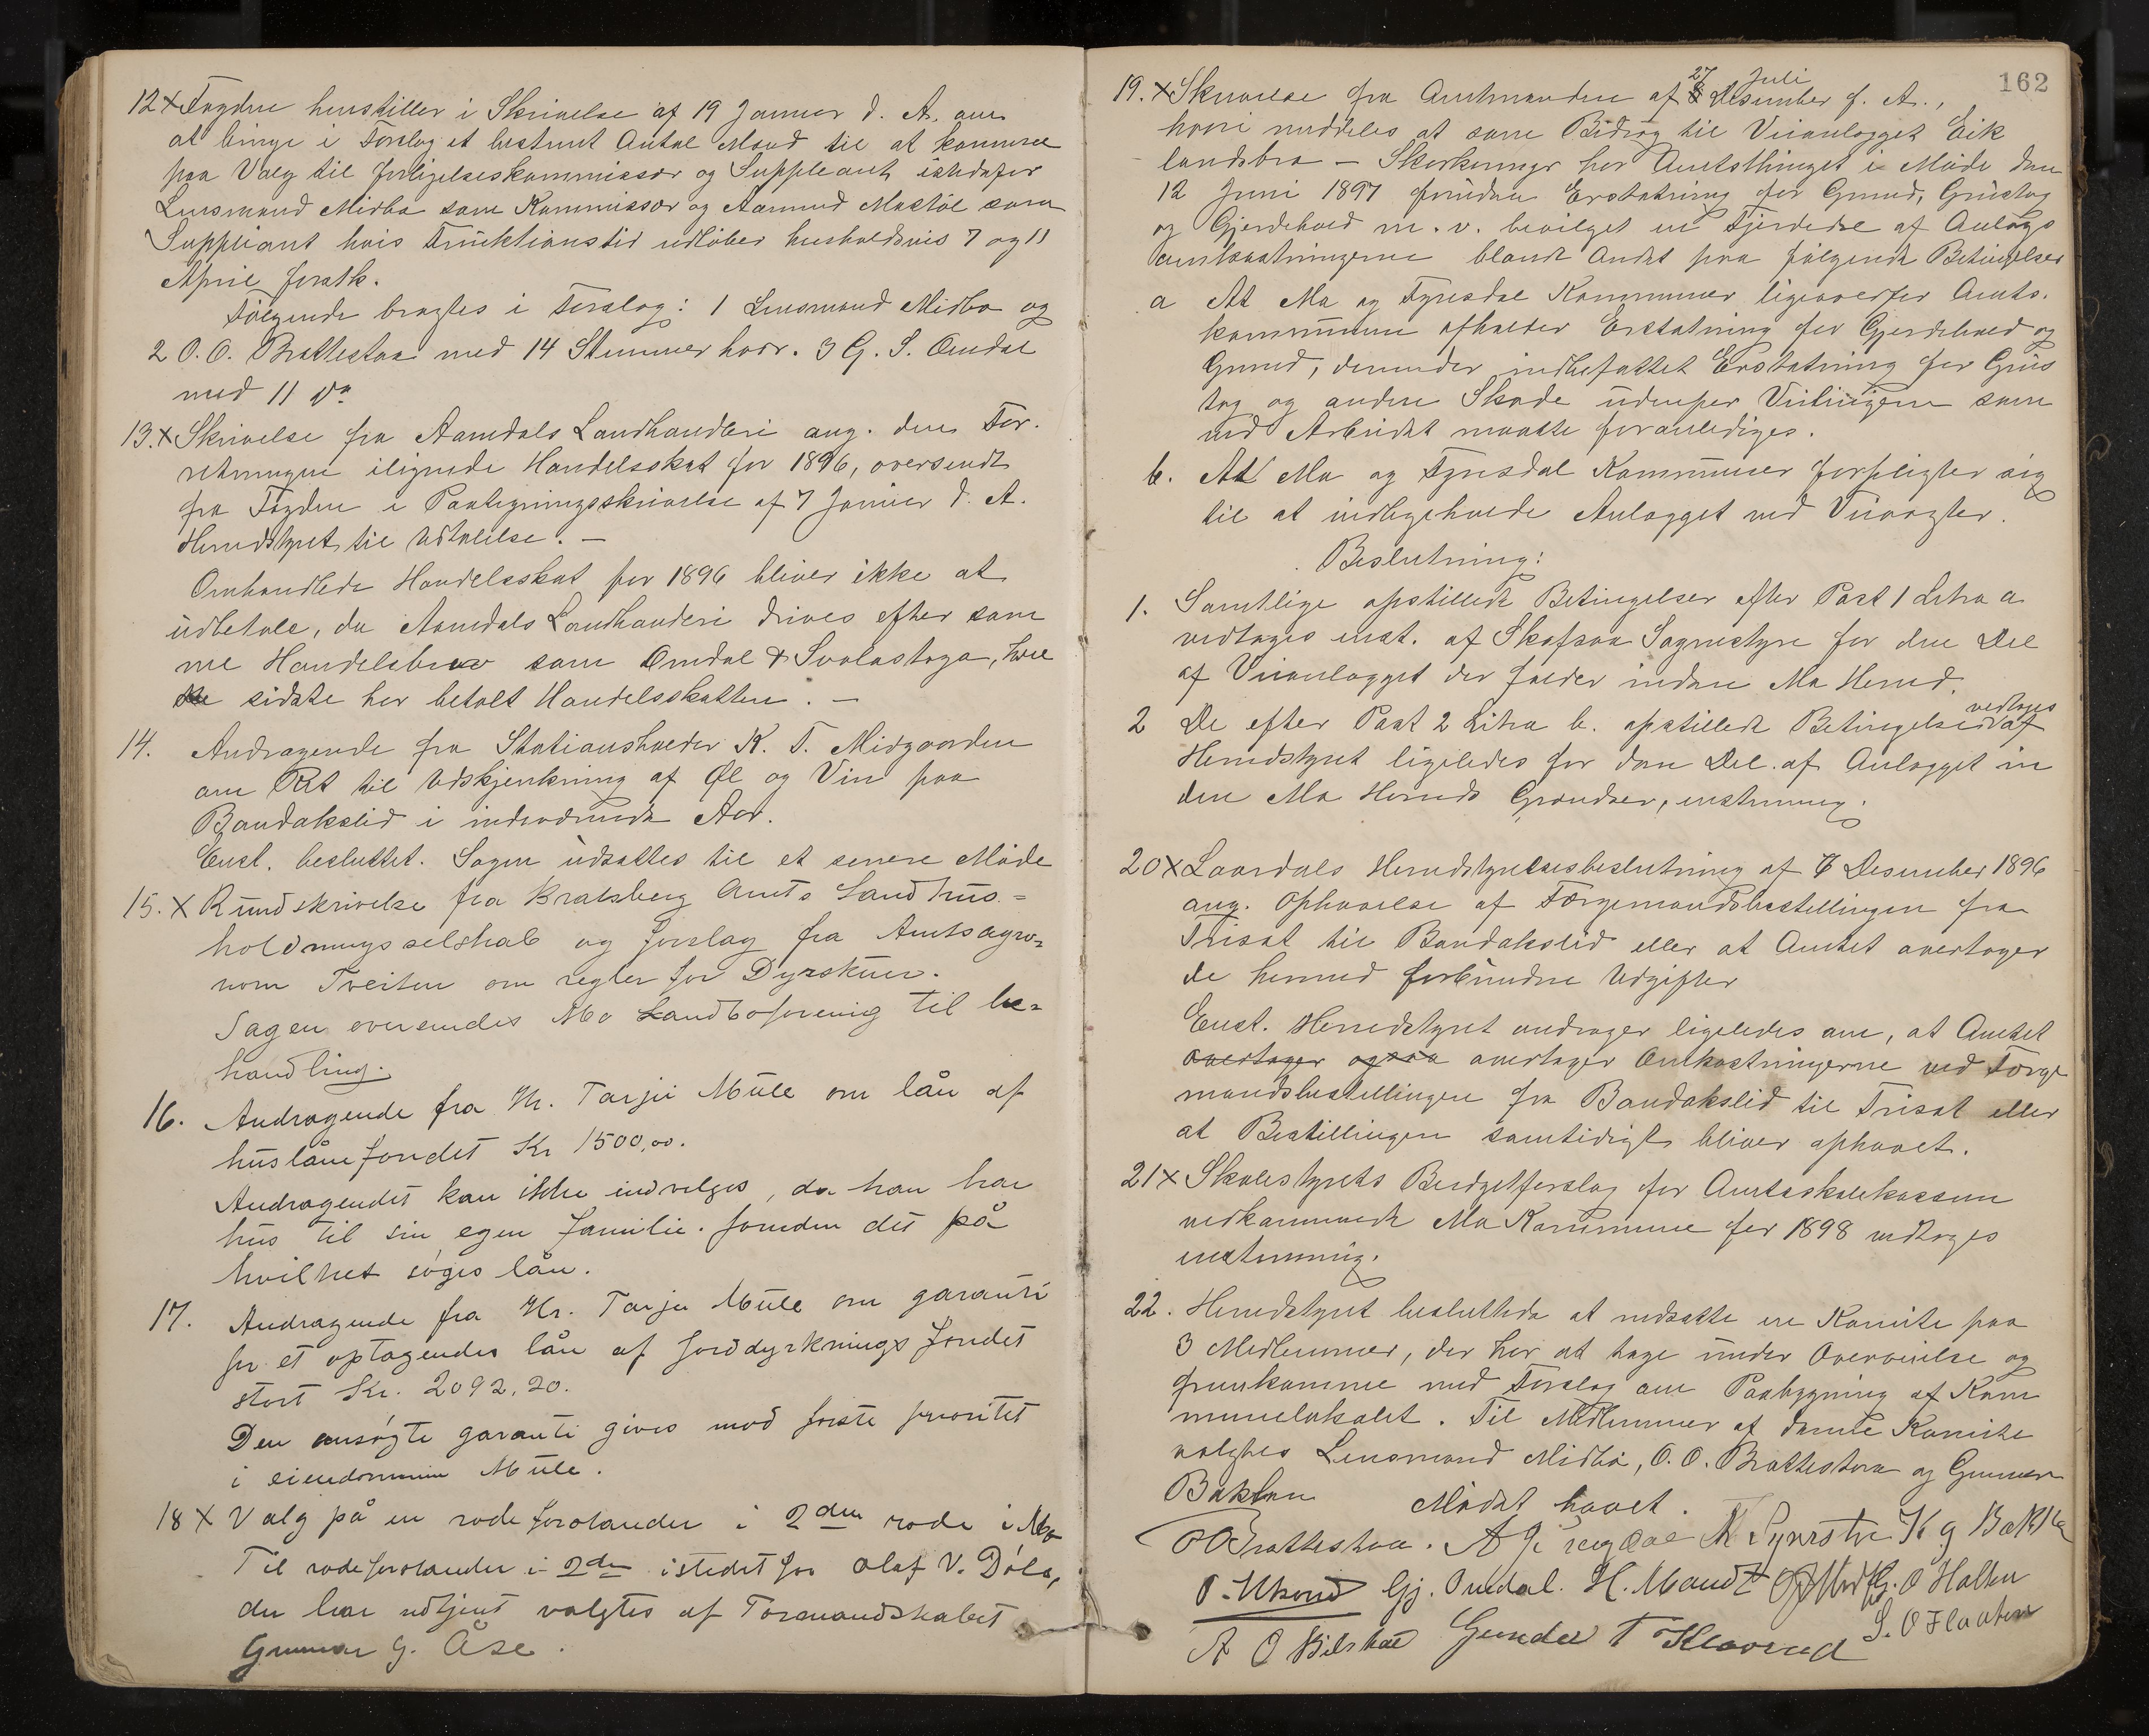 12 x Fogden henstiller i Skrivelse af 19 Januar d. A. om
at bringe i Forslag et bestemt Antal Mænd til at komme
paa Valg til Forligelseskommissær og Suppleant istedetfor
Lensmand Midbø som Kommissær og Aamund Mostøl som
Suppleant hvis Funktionstid udløber henholdsvis 7 og 11
April førstk.
Følgende bragtes i Forslag: 1 Lensmand Midbø og
2 O. O. Brattestaa med 14 Stemmer hver. 3 G. S. Omdal
med 11 do
13. x Skrivelse fra Aamdals Landhandleri ang. den For-
retningen ilignede Handelsskat for 1896, oversendt
fra Fogden i Paategningsskrivelse af 7 Januar d. A.
Herredstyret til Udtalelse. —
Omhandlede Handelsskat for 1896 bliver ikke at
udbetale, da Aamdals Landhandleri drives efter sam
me Handelsbrev som Omdal & Svalastoga, hvil
ke sidste har betalt Handelsskatten. —
14. Andragende fra Stationsholder K. T. Midgaarden
om Ret til Udskjenkning af Øl og Vin paa
Bandakslid i indeværende Aar.
Enst. besluttet. Sagen udsættes til et senere Møde
15. x Rundskrivelse fra Bratsberg Amts Landhus-
holdningsselskab og forslag fra Amtsagro-
nom Tveiten om regler for Dyrskuer.
Sagen oversendes Mo Landboforenig til be-
handling.
16. Andragende fra Hr. Tarjei Mule om lån af
huslånefondet Kr 1500,00.
Andragendet kan ikke indvilges, da han har
hus til sin egen familie. foruden det på
hvilket søges lån.
17. Andragende fra Hr. Tarje Mule om garanti
for et optagendes lån af jorddyrkningsfondet
stort Kr. 2092,20.
Den ansøgte garanti gives mod første prioritet
i eiendommen Mule.
18 x Valg på en rodeforstander i 2den rode i Mo
Til rodeforstander i 2den istedet for Olaf V. Dóle,
der har udtjent valgtes af Formandskabet
Gunnar G. Åse.
162
19. x Skrivelse fra Amtmanden af 27 Juli Desember f. A.,
hvori meddeles at som Bidrag til Veianlægget Eik
landsbro - Skarkeringr har Amtsthinget i Møde den
12 Juni 1897 foruden Erstatning for Grund, Grustag
og Gjerdehold m. v. bevilget en Fjerdedel af Anlægs
omkostningerne blandt Andet paa følgende Betingelser
a At Mo og Fyresdal Kommuner ligeoverfor Amts-
kommunen afholder Erstatning for Gjerdehold og
Grund, derunder indbefattet Erstatning for Grus
tag og anden Skade udenfor Veilinjen som
ved Arbeidet maatte foranlediges.
b. At Mo og Fyresdal Kommuner forpligter sig
til at vedligeholde Anlægget ved Veivogter.
Beslutning:
1. Samtlige opstillede Betingelser efter Post 1 Litra a
vedtages enst. af Skafsaa Sognestyre for den Del
af Veianlægget der falder inden Mo Herred.
2 De efter Post 2 Litra b. opstillede Betingelser vedtages af
Herredstyret ligeledes for den Del af Anlægget in
den Mo Herreds Grændser, enstemmig.
20 x Laardals Herredstyrelsesbeslutning af 7 Desember 1896
ang. Ophævelse af Færgemandsbestillingen fra
Trisæt til Bandakslid eller at Amtet overtager
de hermed forbundne Udgifter
Enst. Herredstyret andrager ligeledes om, at Amtet
overtager ogsaa overtager Omkostningerne ved Færge
mandsbestillingen fra Bandakslid til Trisæt eller
at Bestillingen samtidigt bliver ophævet.
21 x Skolestyrets Budgetforslag for Amtsskolekassen
vedkommende Mo Kommune for 1898 vedtages
enstemmig.
22. Herredstyret besluttede at nedsætte en Komite paa
3 Medlemmer, der har at tage under Overveielse og
fremkomme med Forslag om Paabygning af Kom
munelokalet. Til Medlemmer af denne Komite
valgtes Lensmand Midbø, O. O. Brattestaa og Gunnar
Bakken Mødet hævet.
O O Brattestaa. K g Bakken
Gj. Omdal. H. Mandt O Holten
S. O Flaaten
A O Gunder T